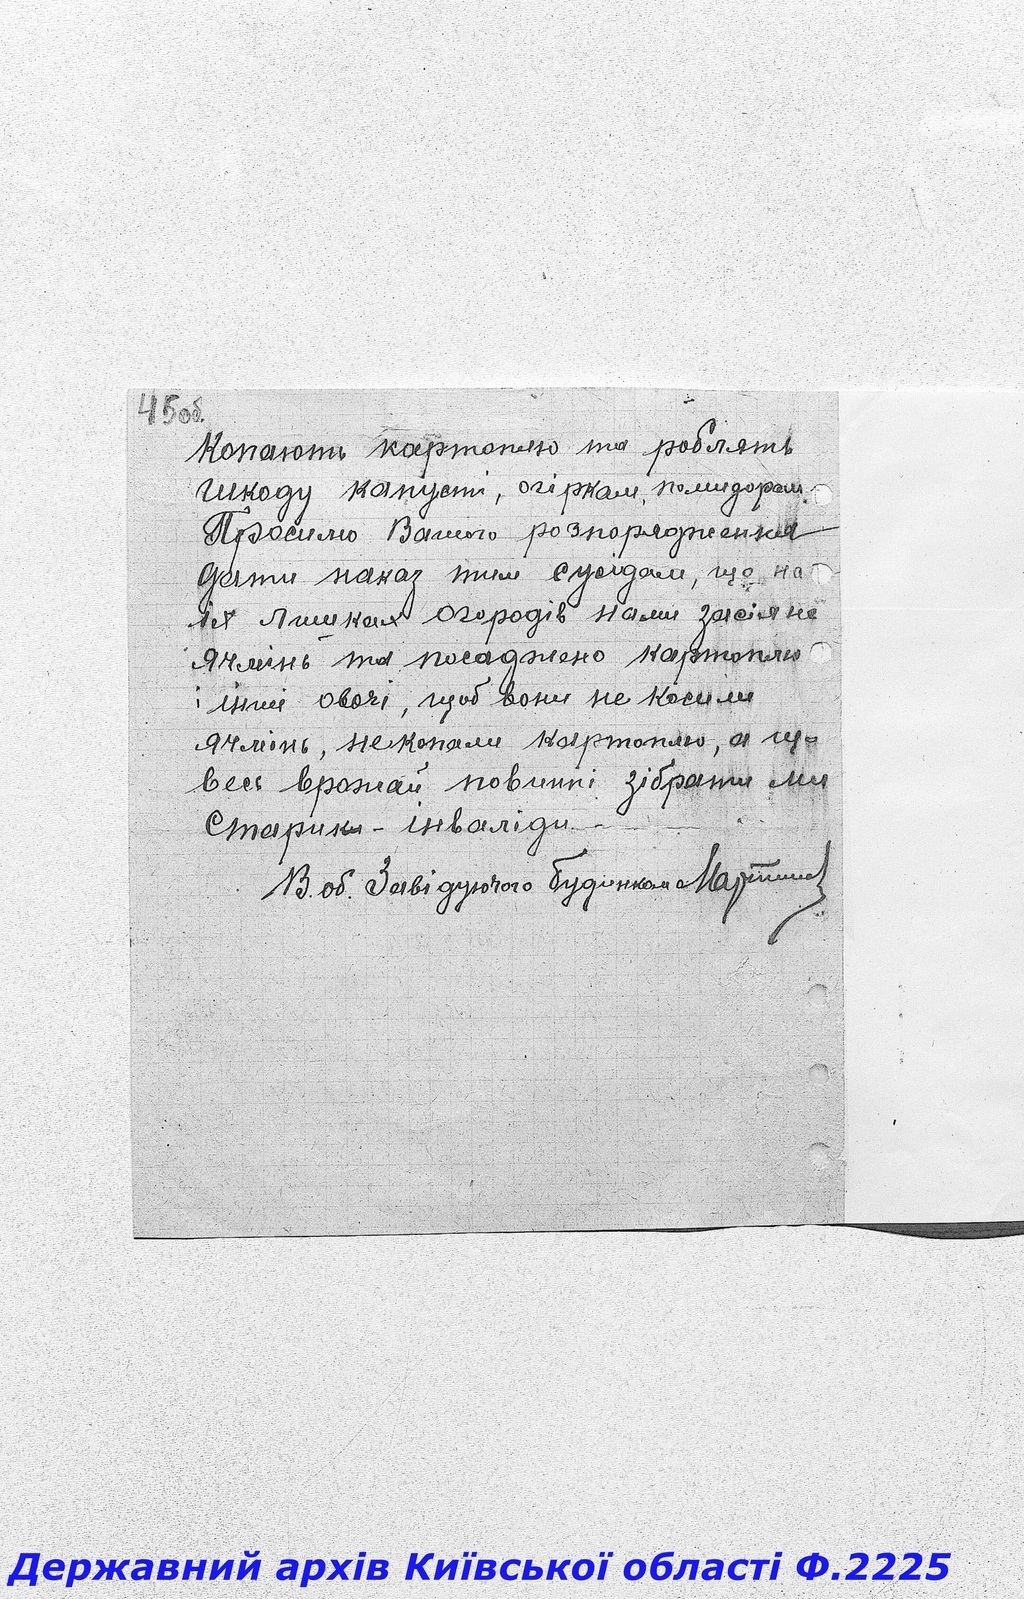 45об.
Копають картоплю та роблять
шкоду капусті, огіркам, помидорам.
Просимо Вашого розпорядження
дати наказ тим сусідам, що на
їх лишках огородів нами засіяне
ячмінь та посаджено картоплю
і інші овочі, щоб вони не косили
ячмінь, не копали картоплю, а що
весь врожай повинні зібрати ми
Старики - інваліди.
В. об. Завідуючого будинком
Державний архів Київської області Ф.2225